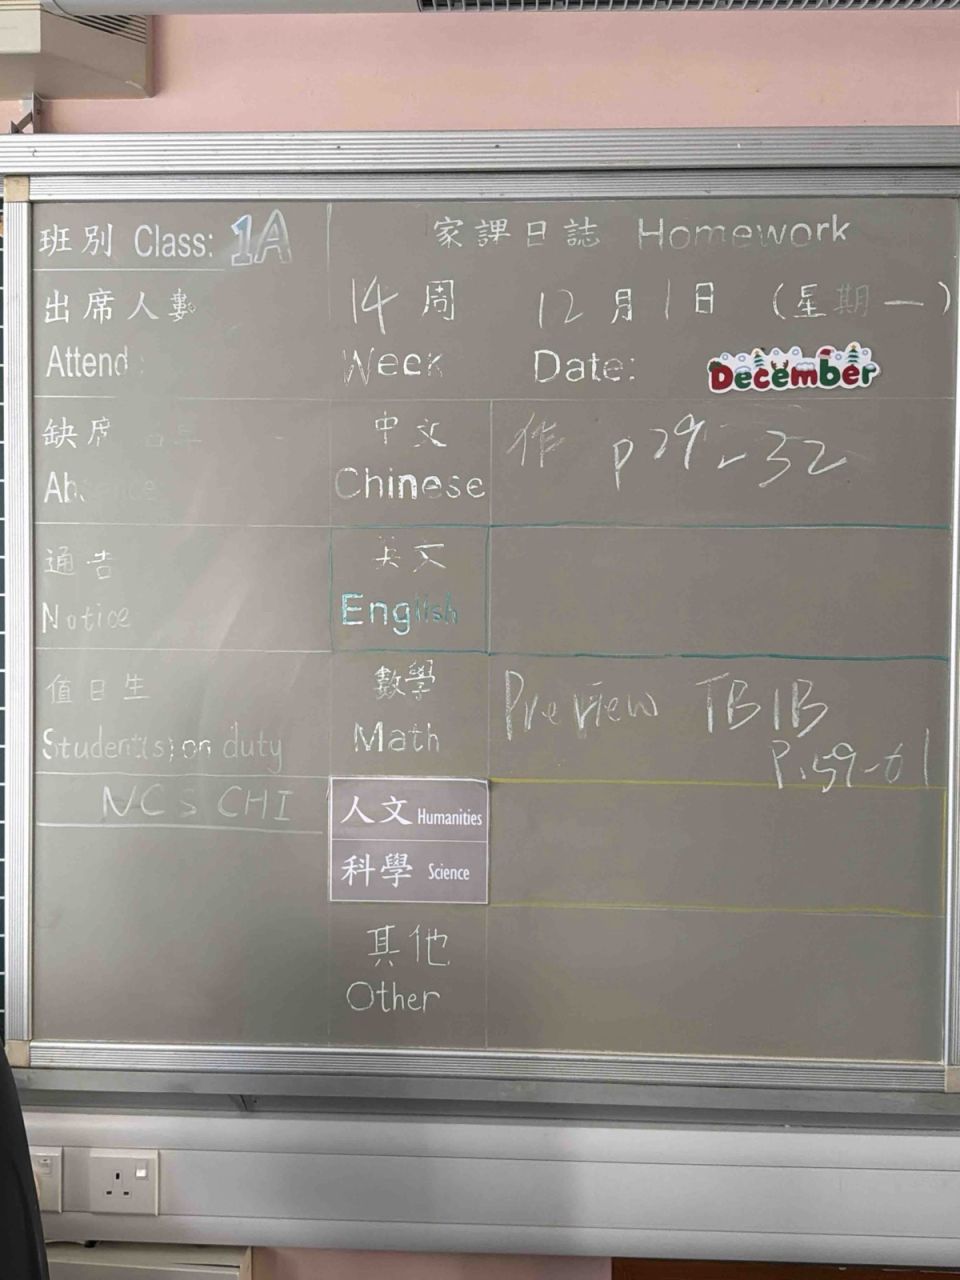 班別 Class: 1A
家課日誌 Homework
出席人數
Attend
14周 12月1日 (星期一)
Week Date: December
缺席
Absence
中文
Chinese
作 p29-32
通告
Notice
英文
English
值日生
Student(s) on duty
數學
Math
Preview TB1B
P.59-61
NCS CHI
人文 Humanities
科學 Science
其他
Other